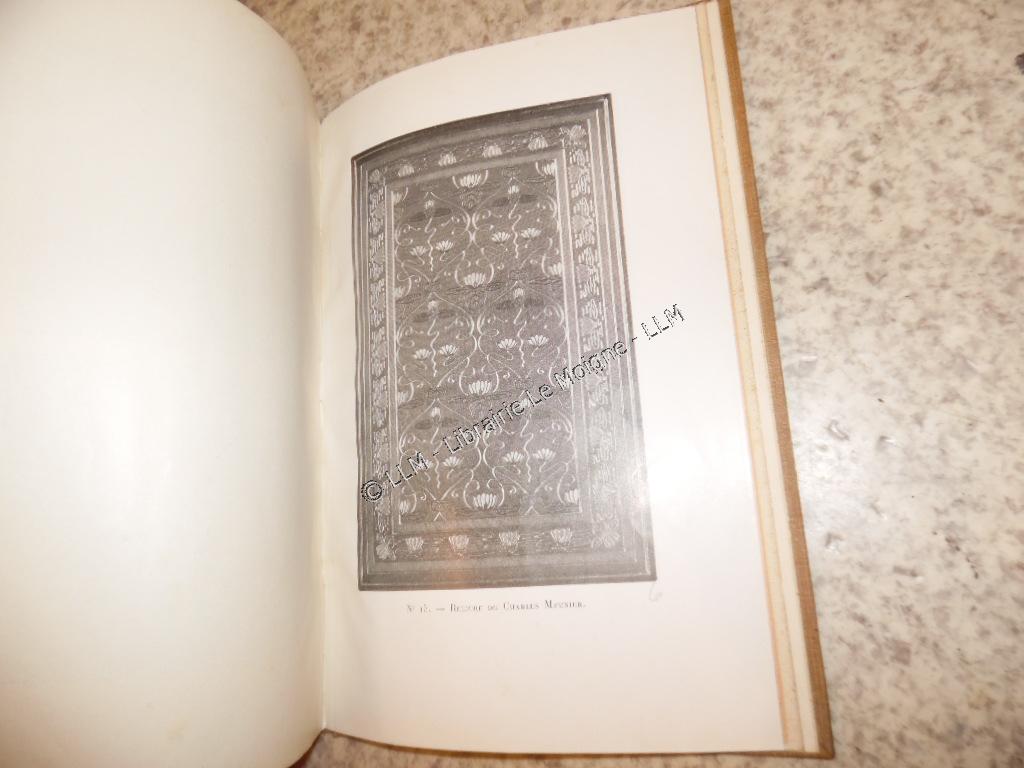 © LLM - Librairie Le Moigne - LLM
— Reliure de Charles Meunier.